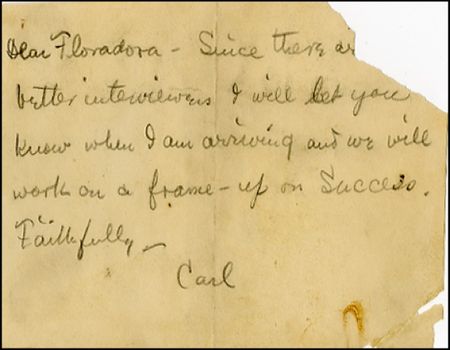 Dear Floradora – Since there ar
better interviewers I will let you
know when I am arriving and we will
work on a frame-up on Success.
Faithfully –
Carl